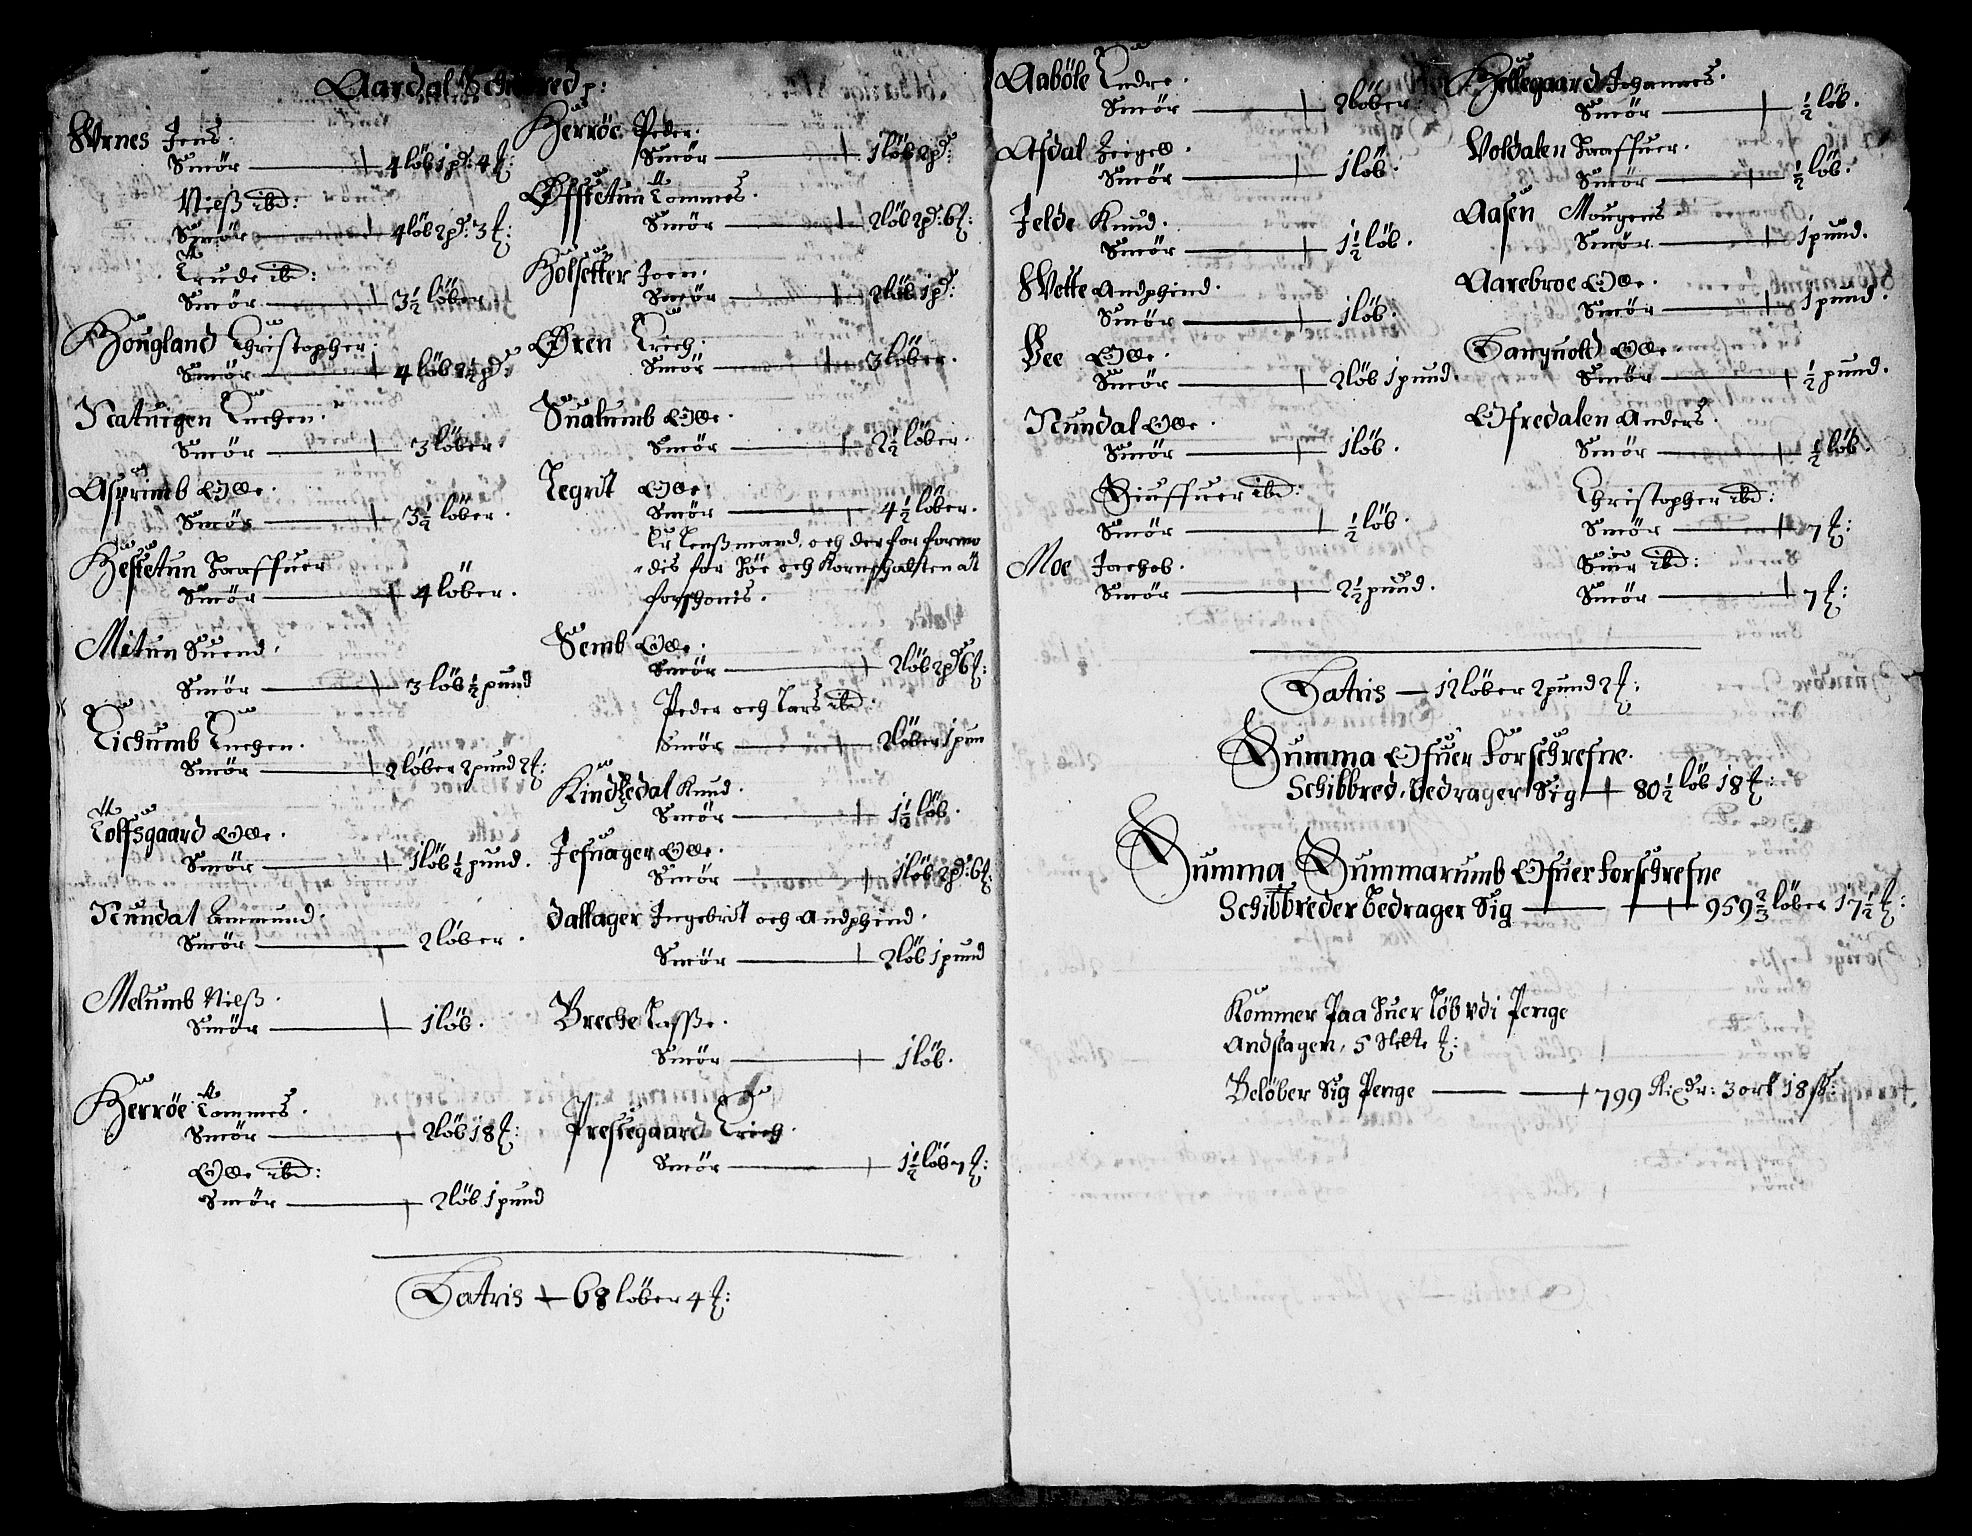 Aardal Schibbred p:
Wrnes Jens.
Smör — 4 löb 1 pd: 4 ℔:
Nilß ibd:
Smör — 4 löb 2 pd: 3 ℔:
Trude ibd:
Smör — 3½ löber.
Hougland Christopher.
Smör — 4 löb 2½ pd:
Natuigen Enchen.
Smör — 3 löber.
Asprimb Olle.
Smör — 3½ löber.
Hestetun Haaffuer
Smör — 4 löber.
Mitun Suend.
Smör — 3 löb ½ pund
Eichumb Enchen.
Smör — 2 löber 2 pund 2 ℔:
Töffsgaard Olle.
Smör — 1 löb ½ pund.
Nundal Ammund.
Smör — 2 löber.
Melumb Nilß.
Smör — 1 löb.
Herröe Tommes.
Smör — 2 löb 18 ℔:
Olle ibd:
Smör — 2 löb 1 pund
Herröe Peder.
Smör — 1 löb 2 pd:
Øffstetun Tommes.
Smör — 2 löb 2 pd: 6 ℔:
Holsetter Joen.
Smör — 2 löb 1 pd:
Øren Erich.
Smör — 3 löber.
Sualumb Olle.
Smör — 2½ löber.
Legrit Olle.
Smör — 4½ löber.
Er Lenßmand, och derfor formo
dis for Höe och Kornschatten at
forschonis.
Semb Olle.
Smör — 2 löb 2 pd 6 ℔:
Peder och Lars ibd.
Smör — 2 löber 1 pun
Kindzedal Knud.
Smör — 1½ löb.
Jefnager Olle.
Smör — 1 löb 2 pd: 6 ℔:
Dallager Ingebrit och Andphind.
Smör — 2 löb 1 pund
Breche Lasße.
Smör — 1 löb.
Prestegaard Erich.
Smör — 1½ löb 7 ℔:
Latris — 68 löber 4 ℔:
Aaböle Endre.
Smör — 2 löber.
Afdal Zeigell.
Smör — 1 löb.
Jelde Knud.
Smör — 1½ löb.
Wette Andphind.
Smör — 1 löb.
Vee Olle.
Smör — 2 löb 1 pund.
Nundal Olle.
Smör — 1 löb.
Siuffuer ibd:
Smör — ½ löb.
Moe Jachob.
Smör — 2½ pund.
Hellegaard Johannes.
Smör — ½ löb.
Voldalen Haaffuer.
Smör — ½ löb.
Aasen Mougens.
Smör — 1 pund.
Aarebroe Olle.
Smör — 1 pund.
Sanquold Olle.
Smör — ½ pund.
Ofredalen Anders.
Smör — ½ löb.
Christopher ibd:
Smör — 7 ℔:
Siur ibd:
Smör — 7 ℔:
Latris — 12 löber 2 pund 2 ℔:
Summa Ofuer forschrefne.
Schibbred, bedrager Sig — 80½ löb 18 ℔:
Summa Summarumb Ofuer forschrefne
Schibbreder bedrager Sig — 959⅔ löber 17½ ℔:
Kommer Paa huer löb vdi Penge
Andslagen, 5 Slette ℔:
Belöber Sig Penge — 799 Rixdr: 3 ort 18 ß: